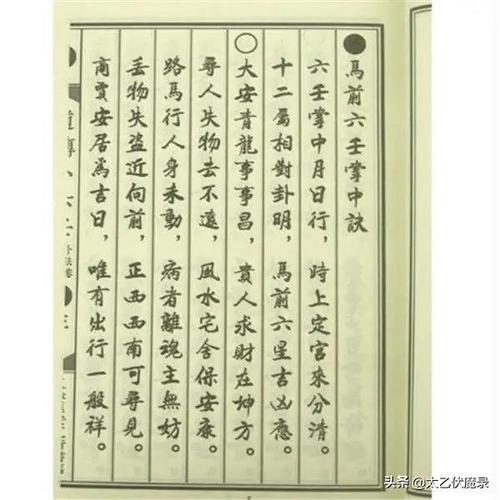 ●馬前六壬掌中訣
六壬掌中月日行，時上定宮來分清。
十二屬相對卦明，馬前六星吉凶應。
○大安青龍事事昌，貴人求財在坤方。
尋人失物去不遠，風水宅舍保安康。
路馬行人身未動，病者離魂主無妨。
丢物失盜近向前，正西西南可尋見。
商賈安居為吉日，唯有出行一般祥。
头条 @太乙伏魔录